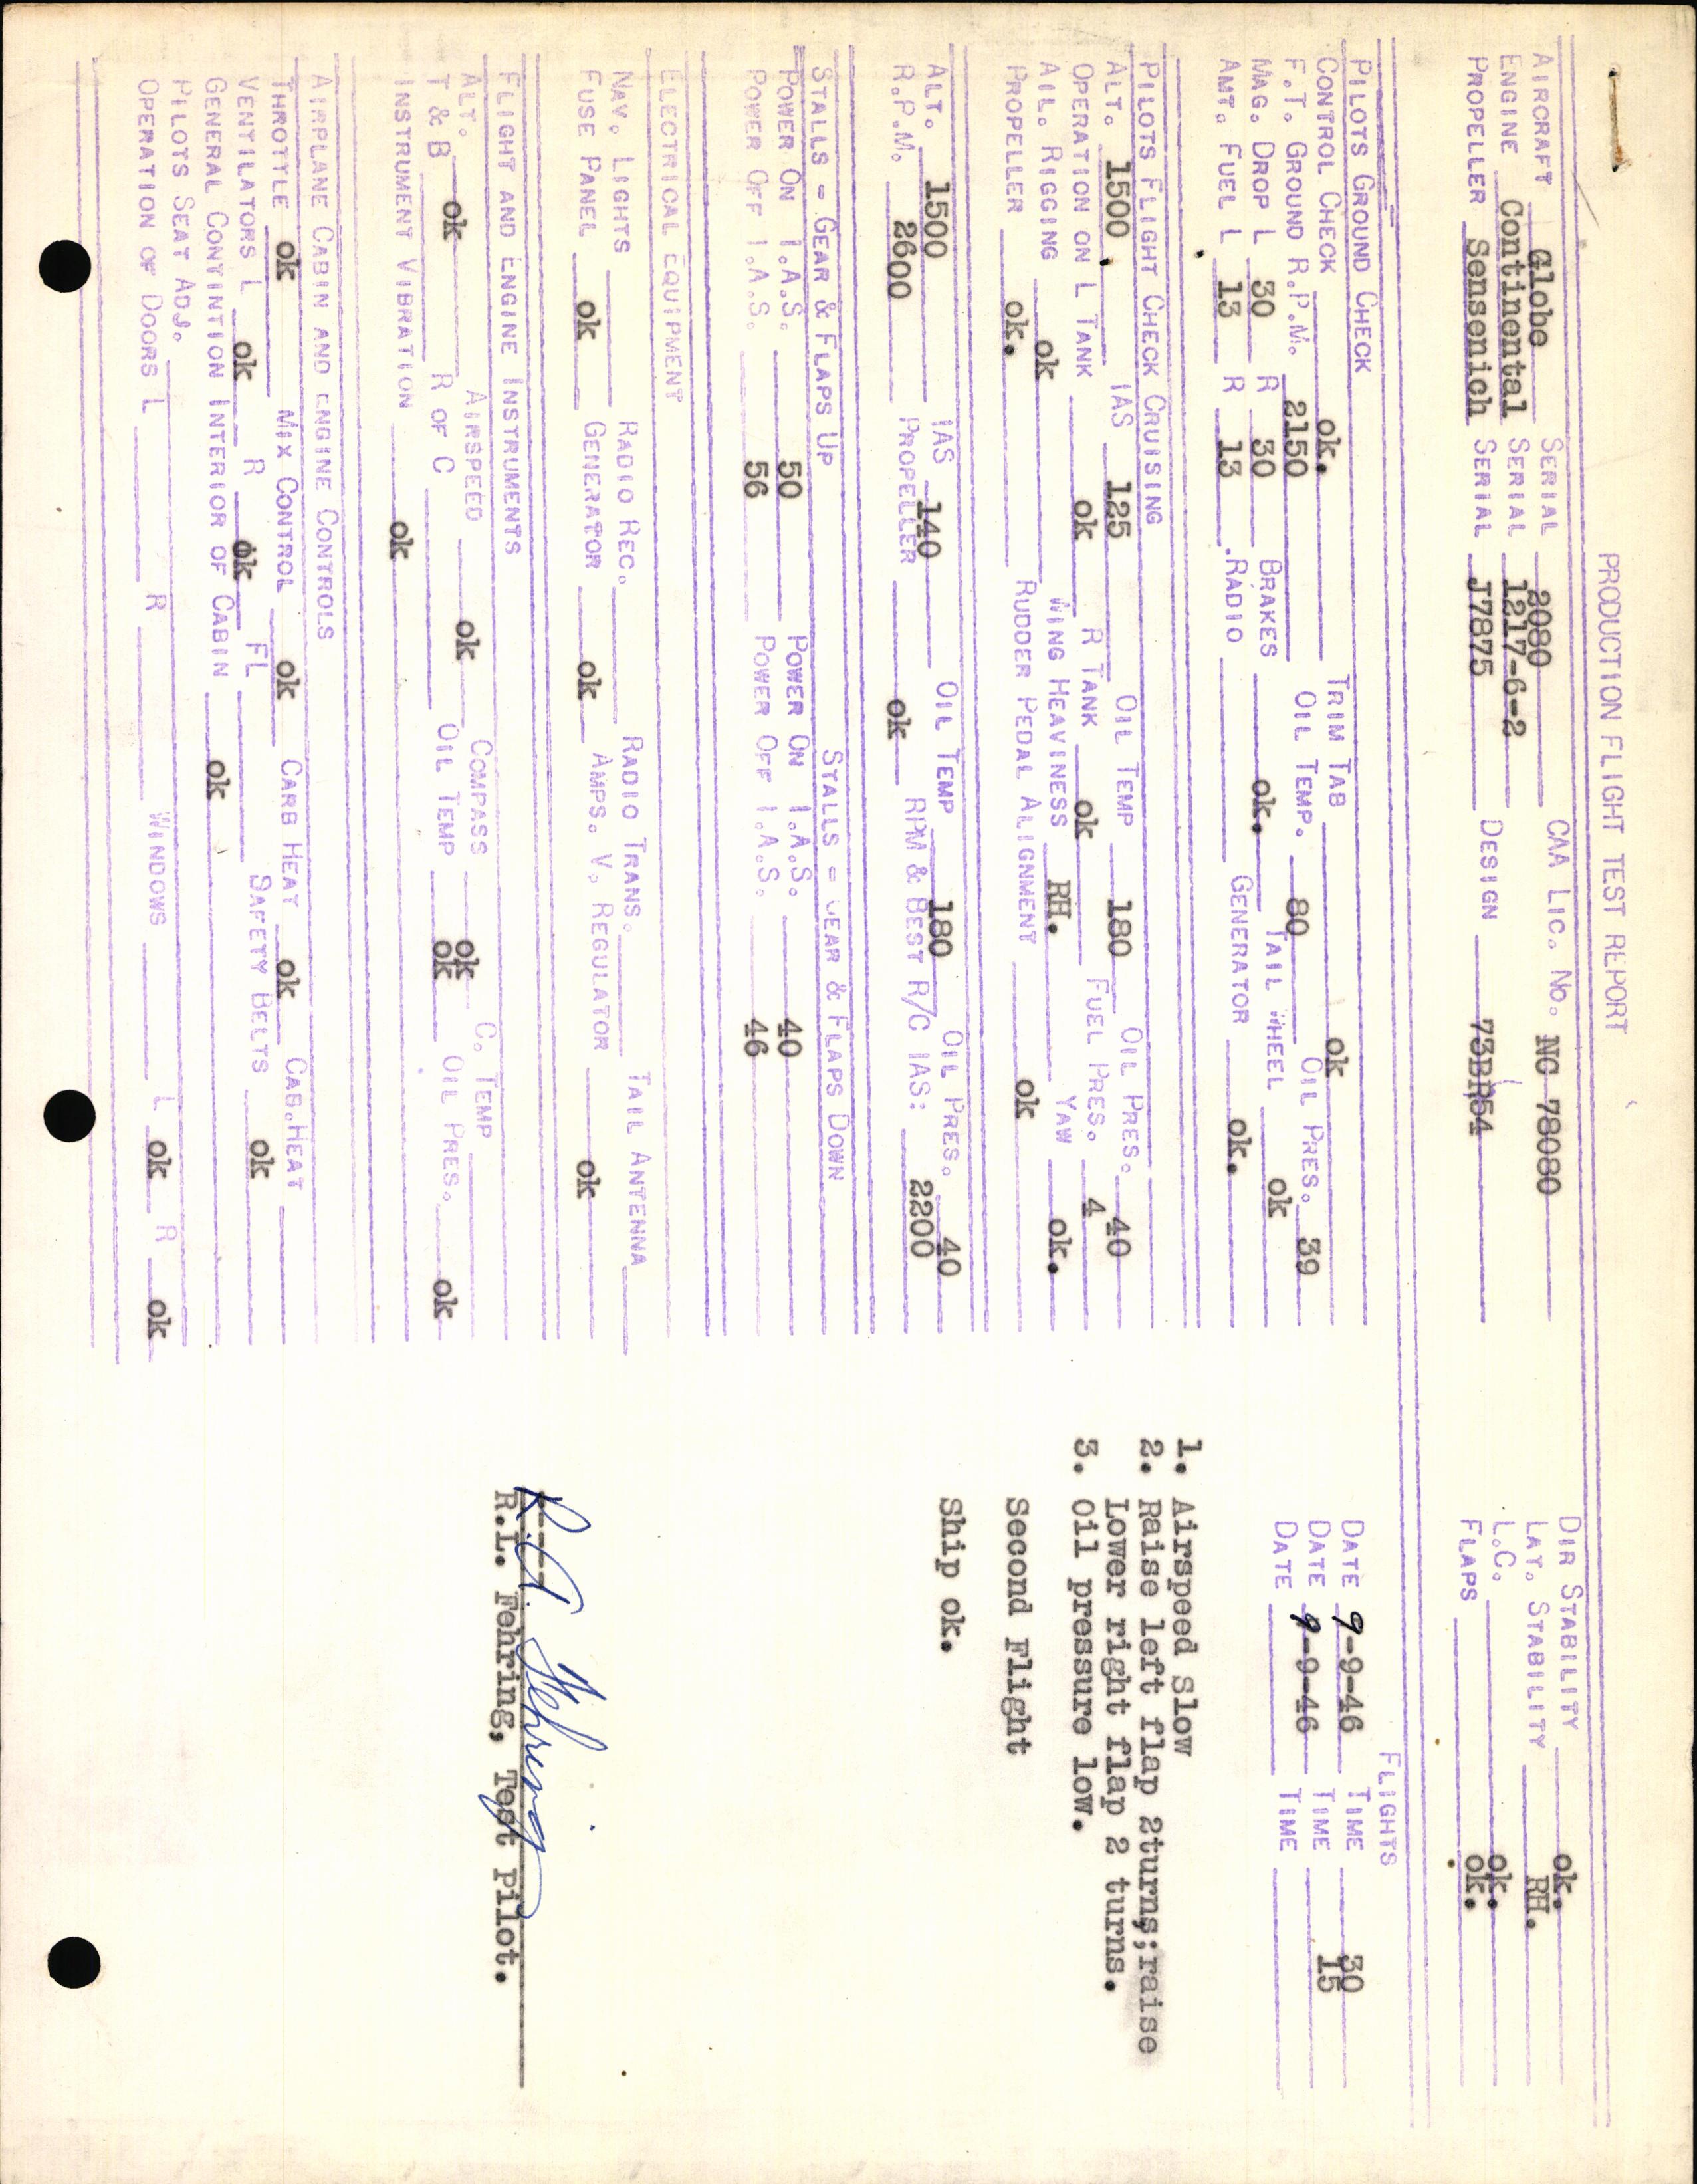 PRODUCTION FLIGHT TEST REPORT
AIRCRAFT Globe SERIAL 2080 CAA LIC. NO. NC 78080
ENGINE Continental SERIAL 1217-6-2
PROPELLER Sensenich SERIAL J7875 DESIGN 73BR54
DIR STABILITY ok.
LAT. STABILITY RH.
L.C. ok.
FLAPS ok.
PILOTS GROUND CHECK
CONTROL CHECK ok. TRIM TAB ok
F.T. GROUND R.P.M. 2150 OIL TEMP. 80 OIL PRES. 39
MAG. DROP L 30 R 30 BRAKES ok. TAIL WHEEL ok
AMT. FUEL L 13 R 13 RADIO GENERATOR ok.
PILOTS FLIGHT CHECK CRUISING
ALT. 1500 IAS 125 OIL TEMP 180 OIL PRES. 40
OPERATION ON L TANK ok R TANK ok FUEL PRES. 4
AIL. RIGGING ok WING HEAVINESS RH. YAW ok.
PROPELLER ok. RUDDER PEDAL ALIGNMENT ok
ALT. 1500 IAS 140 OIL TEMP 180 OIL PRES. 40
R.P.M. 2600 PROPELLER ok RPM & BEST R/C IAS: 2200
STALLS = GEAR & FLAPS UP STALLS = GEAR & FLAPS DOWN
POWER ON I.A.S. 50 POWER ON I.A.S. 40
POWER OFF I.A.S. 56 POWER OFF I.A.S. 46
ELECTRICAL EQUIPMENT
NAV. LIGHTS RADIO REC. RADIO TRANS. TAIL ANTENNA
FUSE PANEL ok GENERATOR ok AMPS. V. REGULATOR ok
FLIGHT AND ENGINE INSTRUMENTS
ALT. ok AIRSPEED ok COMPASS ok C. TEMP
T & B R OF C OIL TEMP ok OIL PRES. ok
INSTRUMENT VIBRATION ok
AIRPLANE CABIN AND ENGINE CONTROLS
THROTTLE ok MIX CONTROL ok CARB HEAT ok CAB. HEAT
VENTILATORS L ok R ok FL SAFETY BELTS ok
GENERAL CONTINTION INTERIOR OF CABIN ok
PILOTS SEAT ADJ.
OPERATION OF DOORS L R WINDOWS L ok R ok
FLIGHTS
DATE 9-9-46 TIME 30
DATE 9-9-46 TIME 15
DATE TIME
1. Airspeed slow
2. Raise left flap 2turns;raise
Lower right flap 2 turns.
3. Oil pressure low.
Second Flight
Ship ok.
R.L. Fehring
R.L. Fehring, Test Pilot.